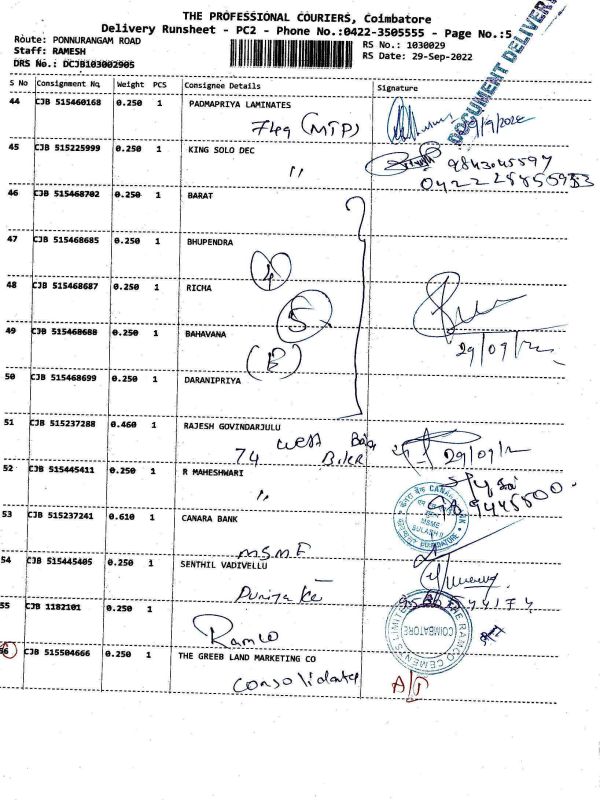 THE PROFESSIONAL COURIERS, Coimbatore
Delivery Runsheet - PC2 - Phone No.:0422-3505555 - Page No.:5
Route: PONNURANGAM ROAD
RS No.: 1030029
Staff: RAMESH
RS Date: 29-Sep-2022
DRS No.: DCJB103002905
DOCUMENT DELIVERY
S No Consignment No. Weight PCS Consignee Details Signature
44 CJB 515460168 0.250 1 PADMAPRIYA LAMINATES
749 (MTP)
45 CJB 515225999 0.250 1 KING SOLO DEC
〃
46 CJB 515468702 0.250 1 BARAT
47 CJB 515468685 0.250 1 BHUPENDRA
4
48 CJB 515468687 0.250 1 RICHA
5
49 CJB 515468688 0.250 1 BAHAVANA
(B)
29/09/
50 CJB 515468699 0.250 1 DARANIPRIYA
51 CJB 515237288 0.460 1 RAJESH GOVINDARJULU
74 West
29/09/
52 CJB 515445411 0.250 1 R MAHESHWARI
〃
53 CJB 515237241 0.610 1 CANARA BANK
MSME
CANARA
MSME
SULABH II
COIMBATORE
54 CJB 515445405 0.250 1 SENTHIL VADIVELLU
55 CJB 1182101 0.250 1
Ramco
THE RAMCO CEMENTS LIMITED
COIMBATORE
56 CJB 515504666 0.250 1 THE GREEB LAND MARKETING CO
A/T